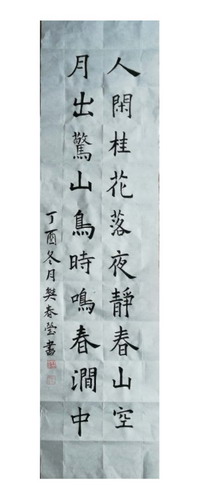 人閑桂花落夜靜春山空
月出驚山鳥時鳴春澗中
丁酉冬月樊春瑩書